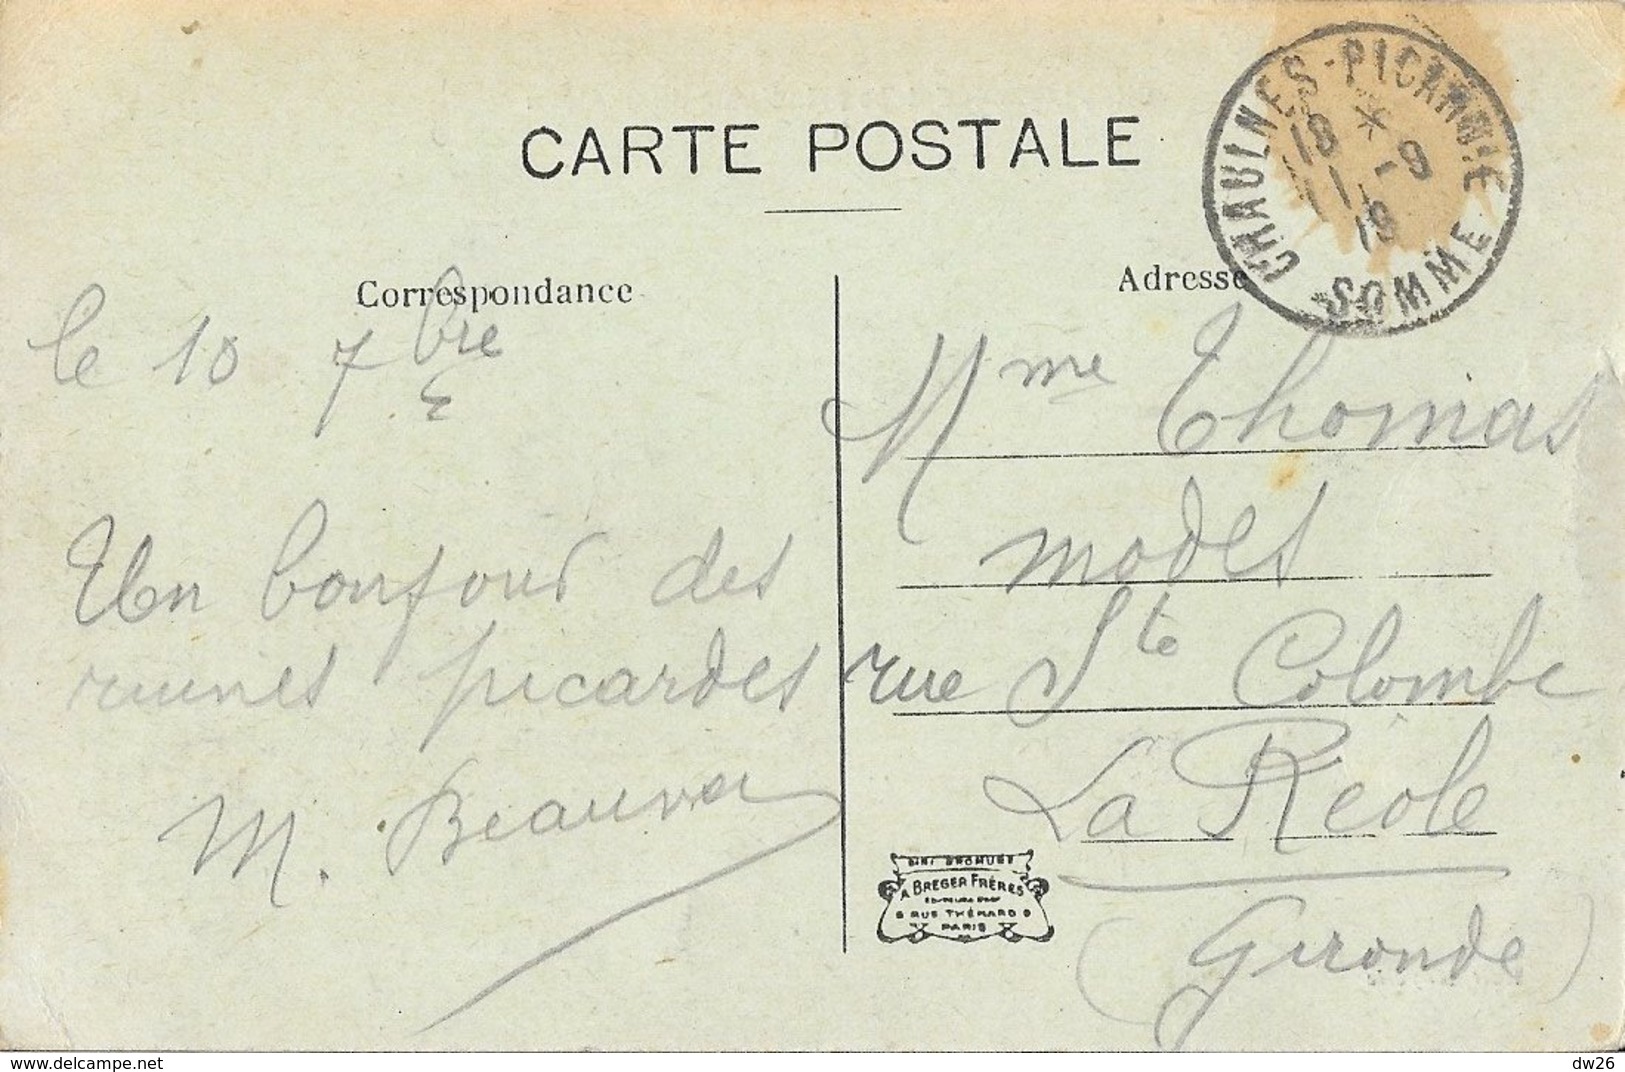 CARTE POSTALE
CHAULNES-PICARDIE
* SOMME
18 - 9
19
Correspondance
le 10 7bre
Un bonjour des
ruines picardes
M. Beauvar
Adresse
Mme Thomas
modes
rue Ste Colombe
La Réole
(Gironde)
A BREGER FRÈRES
9 RUE THÉNARD 9
PARIS
dw26